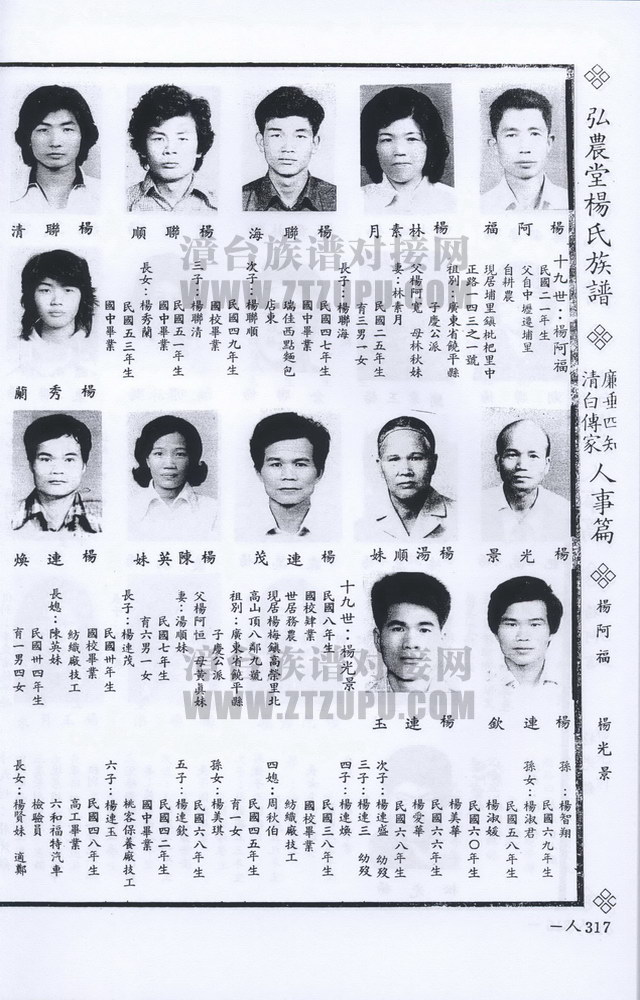 弘農堂楊氏族譜
廉垂四知
清白傳家
人事篇
楊阿福
楊光景
楊阿福
楊林素月
楊聯海
楊聯順
楊聯清
十九世：楊阿福
民國二一年生
父自中壢遷埔里
自耕農
現居埔里鎮枇杷里中
正路一四三之一號
祖別：廣東省饒平縣
子慶公派
父楊阿寬　母林秋妹
妻：林素月
民國二五年生
育三男一女
長子：楊聯海
民國四七年生
國中畢業
瑞佳西點麵包
店東
次子：楊聯順
民國四九年生
國校畢業
三子：楊聯清
民國五一年生
國中畢業
長女：楊秀蘭
民國五三年生
國中畢業
楊秀蘭
楊光景
楊湯順妹
楊連茂
楊陳英妹
楊連煥
楊連欽
楊連玉
十九世：楊光景
民國八年生
國校肄業
世居務農
現居楊梅鎮高榮里北
高山頂八鄰九號
祖別：廣東省饒平縣
子慶公派
父楊阿恒　母黃貞妹
妻：湯順妹
民國七年生
育六男一女
長子：楊連茂
民國廿四年生
國校畢業
紡織廠技工
長媳：陳英妹
民國卅四年生
育一男四女
孫：楊智翔
民國六九年生
孫女：楊淑君
民國五八年生
楊淑媛
民國六〇年生
楊美華
民國六六年生
楊愛華
民國六八年生
次子：楊連盛　幼歿
三子：楊連三　幼歿
四子：楊連煥
民國三八年生
國校畢業
紡織廠技工
四媳：周秋伯
民國四五年生
育一女
孫女：楊美琪
民國六八年生
五子：楊連欽
民國四二年生
國中畢業
桃客保養廠技工
六子：楊連玉
民國四八年生
高工畢業
六和福特汽車
檢驗員
長女：楊賢妹　適鄭
一人317
漳台族谱对接网
WWW.ZTZUPU.COM
漳台族谱对接网
WWW.ZTZUPU.COM